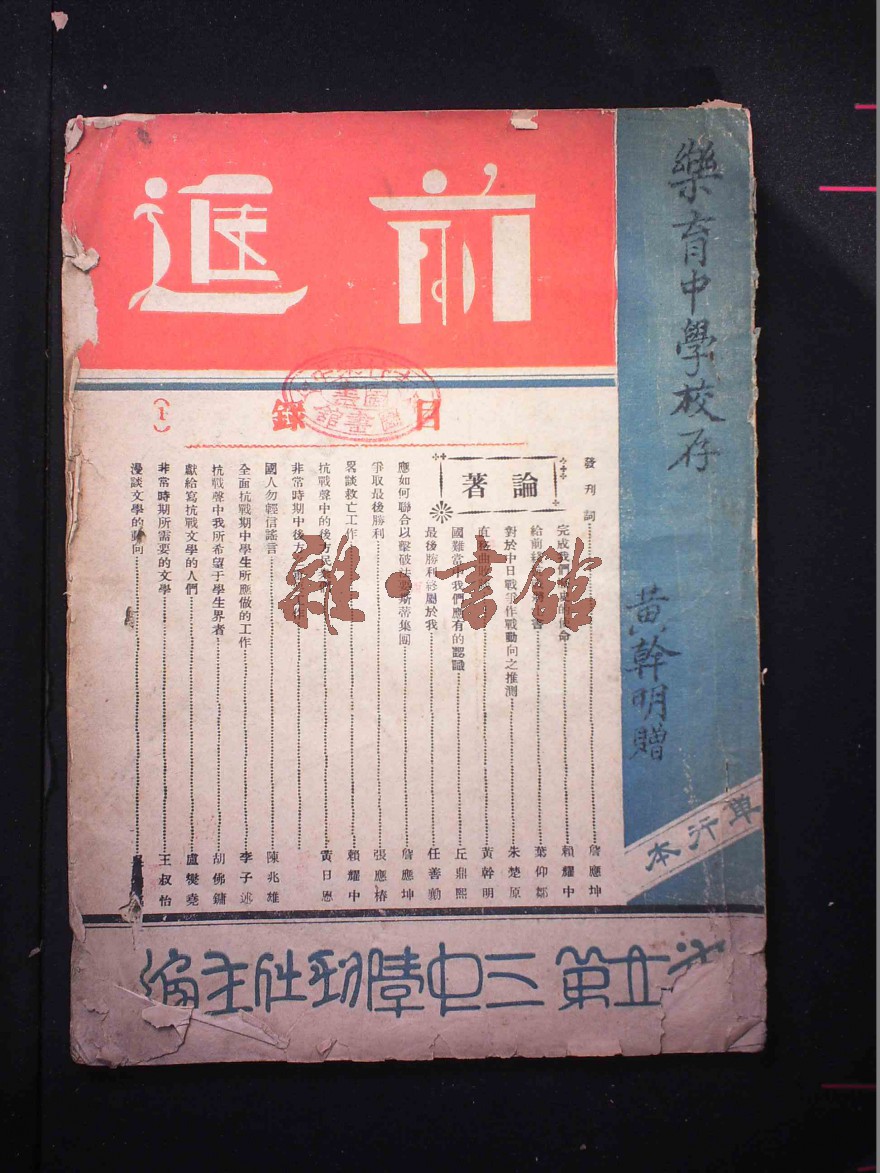 前進
樂育中學校存
黃幹明贈
單行本
目錄
(1)
發刊詞 詹應坤
論著
完成我們 的使命 賴耀中
給前 書 葉仰鄒
對於中日戰爭作戰動向之推測 朱楚原
直 曲 黃幹明
國難當中我們應有的認識 丘鼎熙
最後勝利終屬於我 任善勳
應如何聯合以擊破法西斯蒂集團 詹應坤
爭取最後勝利 張應椿
畧談救亡工作 賴耀中
抗戰聲中的後方民 黃日恩
非常時期中後方
國人勿輕信謠言 陳兆雄
全面抗戰期中學生所應做的工作 李子述
抗戰聲中我所希望于學生界者 胡佛鏞
獻給寫抗戰文學的人們 盧爕堯
非常時期所需要的文學 王叔怡
漫談文學的動向
立第三中 社主編
圖書館
雜·書館